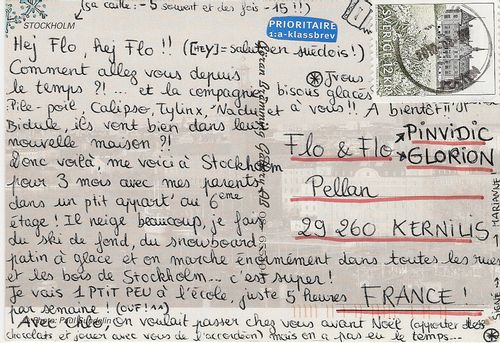 (sa caille : -5 souvent et des fois -15 !!)
STOCKHOLM
PRIORITAIRE
1:a-klassbrev
SVERIGE 12
Hej Flo, hej Flo !! ([HEY] = salut en suédois !)
Comment allez vous depuis
le temps ?! ... et la compagnie
Pile-poil, Calipso, Tylinx, Nadu et
Bidule, ils vont bien dans leur
nouvelle maison ?!
Donc voilà, me voici à Stockholm
pour 3 mois avec mes parents
dans un ptit appart' au 6ème
étage ! Il neige beaucoup, je fais
du ski de fond, du snowboard,
patin à glace et on marche énormément dans toutes les rues
et les bois de Stockholm... c'est super !
Je vais 1 PTIT PEU à l'école, juste 5 heures
par semaine ! (OUF !^^)
Avec Chlo, on voulait passer chez vous avant Noël (apporter des
chocolats et jouer avec vous de l'accordéon) mais on a pas eu le temps...
J'vous
bisous glacés
à vous !! A bientôt !!
Flo & Flo
PINVIDIC
GLORION
Pellan
29 260 KERNILIS,
FRANCE !